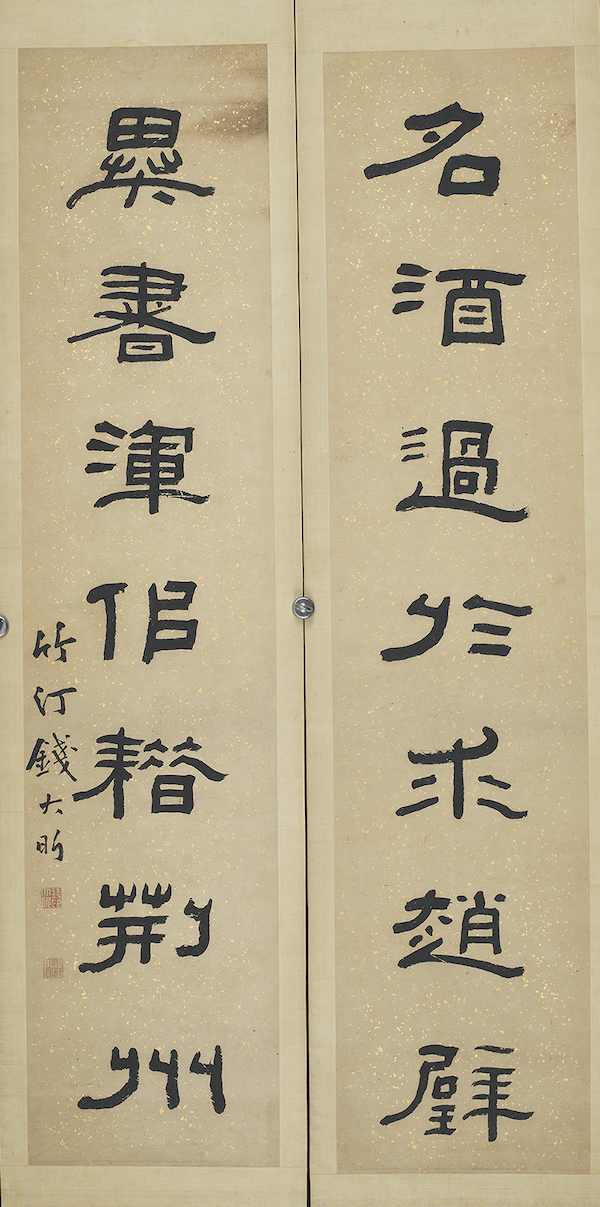 名酒過於求趙璧
異書渾佀耤荊州
竹汀錢大昕